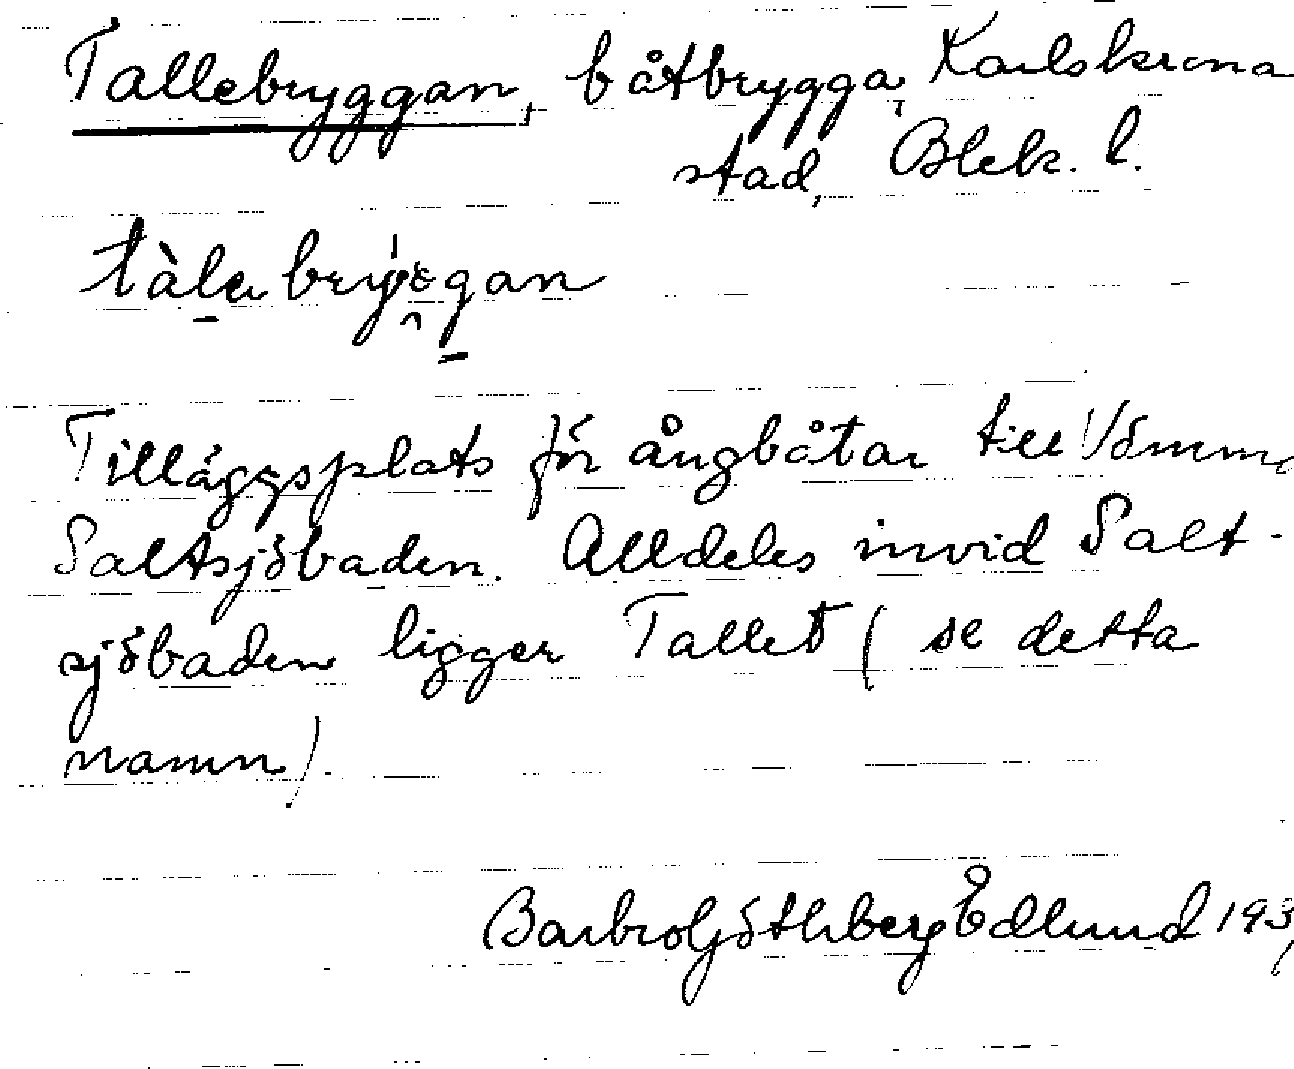 Tallebryggan, båtbrygga, Karlskrona
stad, Blek. l.
Tilläggsplats för ångbåtar till Vämmö
Saltsjöbaden. Alldeles invid Salt-
sjöbaden ligger Tallet (se detta
namn).
Barbro Göthberg Edlund 193